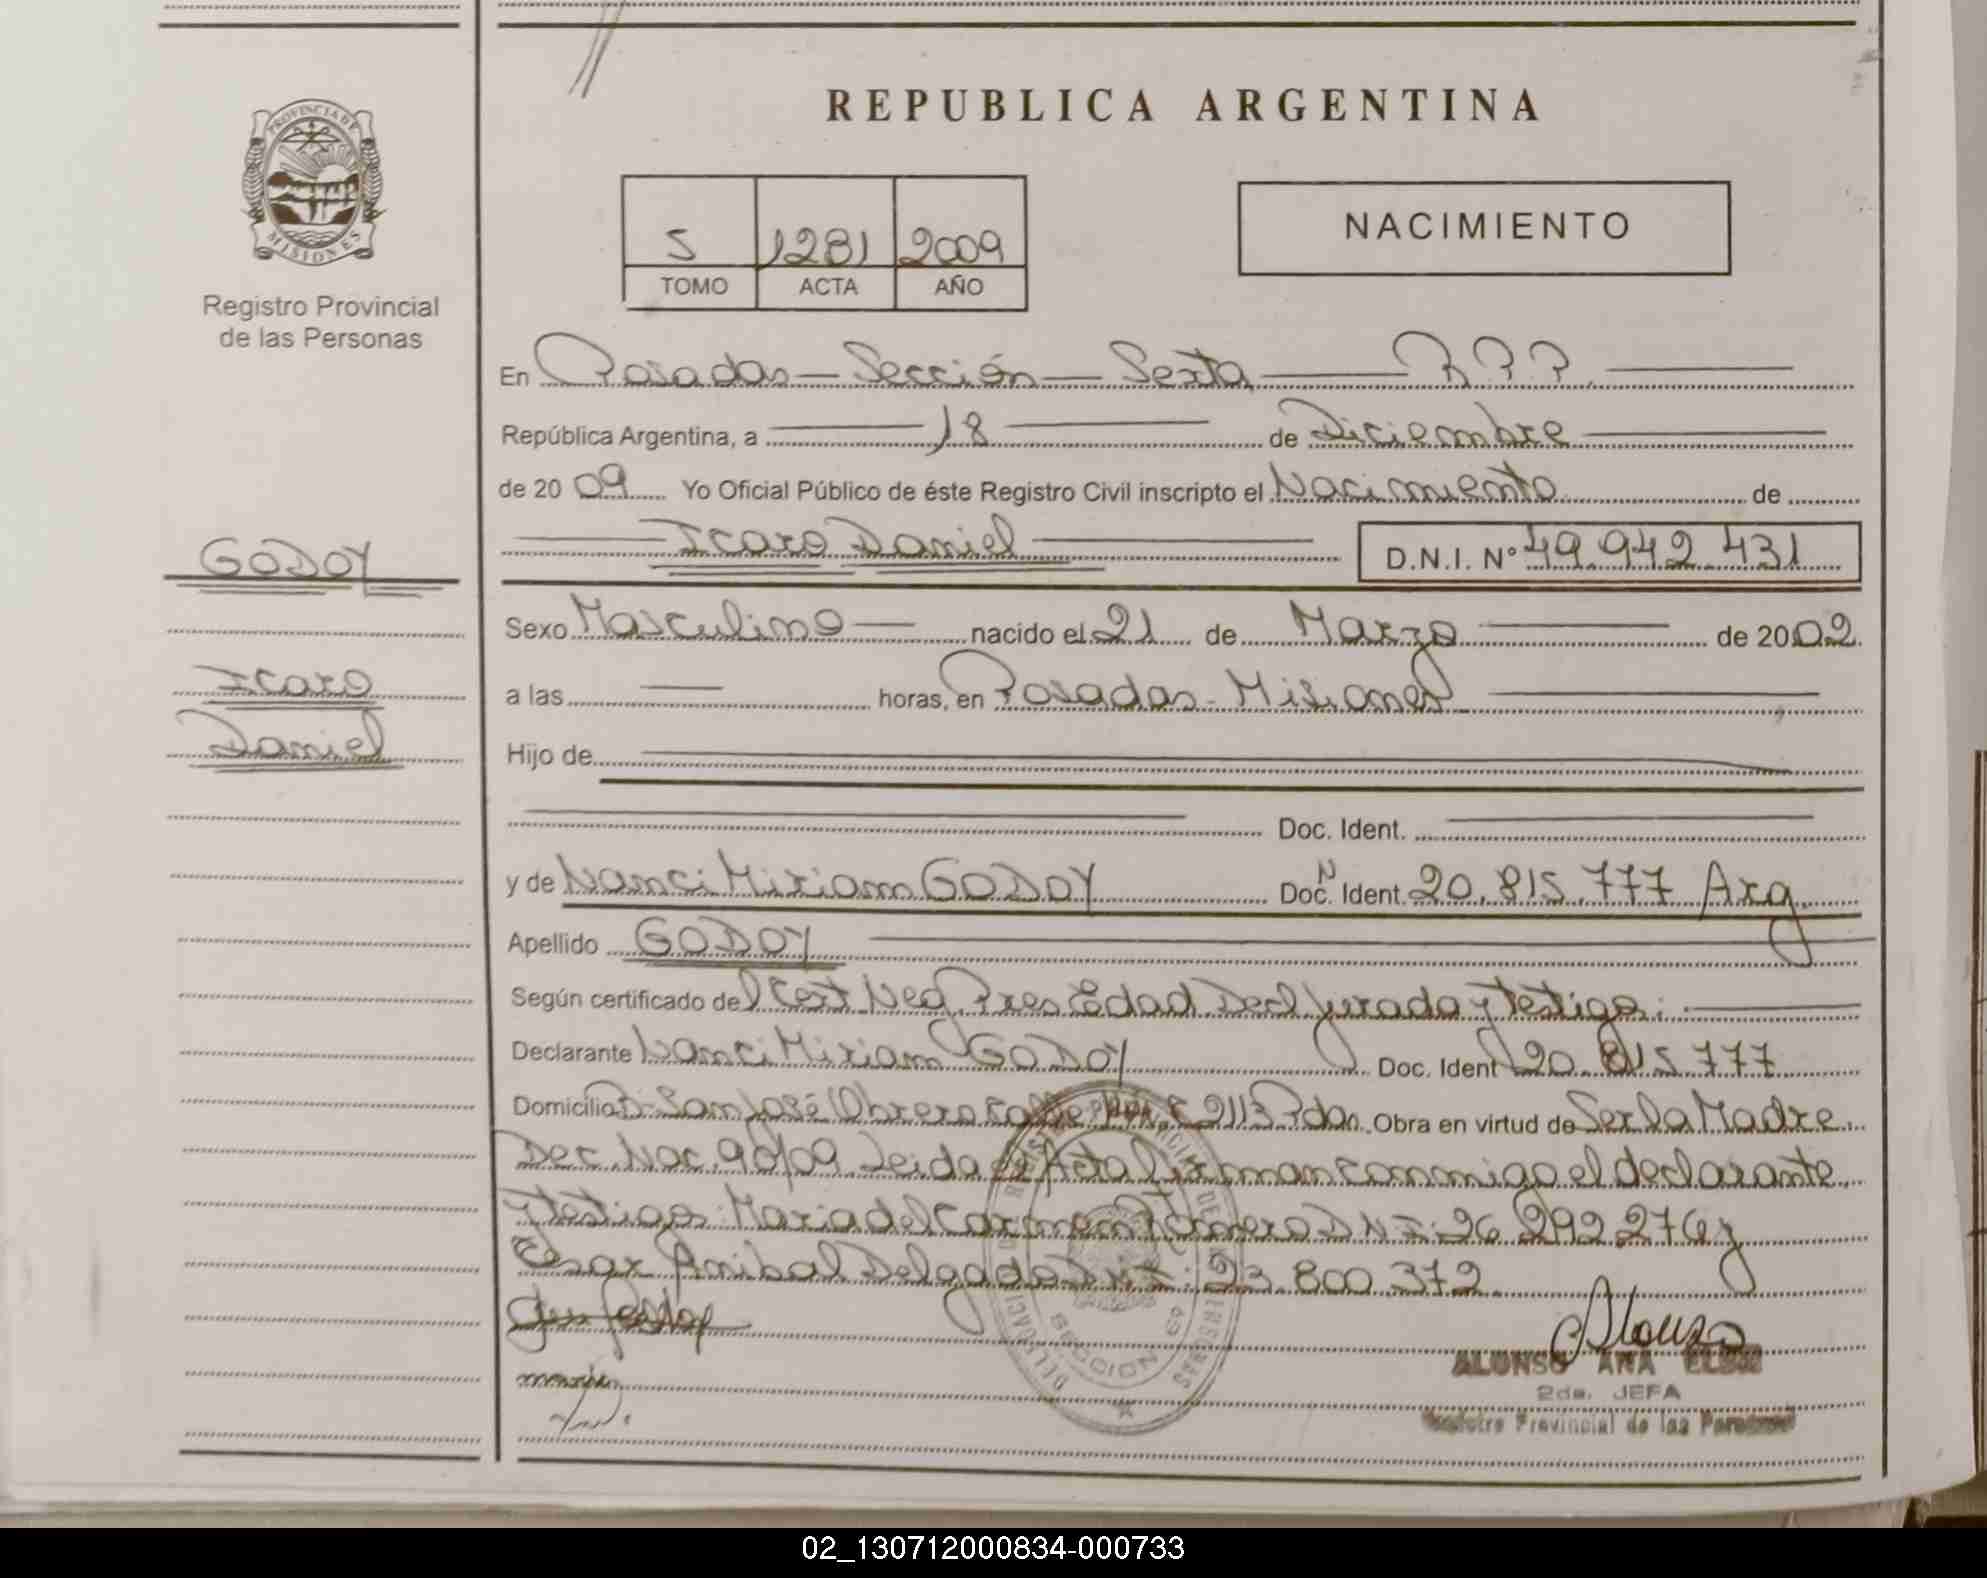 PROVINCIA DE
MISIONES
Registro Provincial
de las Personas
GODOY
Icaro
Daniel
REPUBLICA ARGENTINA
5 1281 2009
TOMO ACTA AÑO
NACIMIENTO
En Posadas - Sección - Sexta R.P.P.
República Argentina, a 18 de Diciembre
de 2009 Yo Oficial Público de éste Registro Civil inscripto el Nacimiento de
Icaro Daniel D.N.I. N° 49.942.431
Sexo Masculino nacido el 21 de Marzo de 2002
a las horas, en Posadas - Misiones
Hijo de
Doc. Ident.
y de Nanci Miriam GODOY Doc. Ident. 20.815.777 Arg
Apellido GODOY
Según certificado del Cert. Neg. Pres Edad Decl Jurada y testigo:
Declarante Nanci Miriam GODOY Doc. Ident 20.815.777
Domicilio San José Obrero 2113 Pdas. Obra en virtud de Ser la Madre
Dec. Nac. 90/09. Leida el Acta firman conmigo el declarante
y testigos: Maria del Carmen DNI: 26.292.276 y
Cesar Anibal Delgado DNI: 23.800.372
ALONSO ANA
2da. JEFA
Registro Provincial de las Personas
SECCION 6ª
02_130712000834-000733